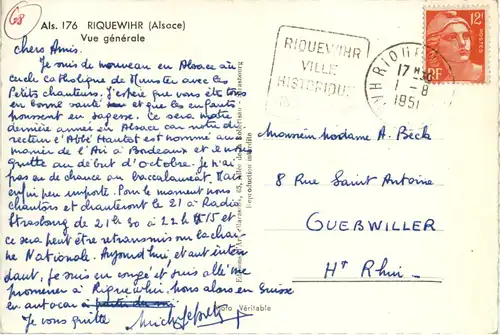 68
Als. 176 RIQUEWIHR (Alsace)
Vue générale
chers Amis.
Je suis de nouveau en Alsace au
cercle catholique de Munster avec les
Petits chanteurs. J'espère que vous êtes tous
en bonne santé et que les enfants
poussent en sagesse. Ce sera notre
dernière année en Alsace car notre di
recteur l'Abbé est nommé au
manoir de l'Ari à Bordeaux et nous
quitte au début d'octobre. Je n'ai
pas eu de chance au baccalauréat. Mais
enfin peu importe. Pour le moment nous
chantons et chanterons le 21 à Radio
Strasbourg de 21.30 à 22 H 15 et
ce sera peut être retransmis sur la chaî
ne Nationale. Aujourd'hui, et aut
daut, je suis en congé et suis allé me
promener à Riquewihr, nous allons en Suisse
en autocar
Je vous quitte
Reproduction interdite
Photo Véritable
RIQUEWIHR
VILLE
HISTORIQUE
RIQUEWIHR
17 H 30
1 - 8
1951
12F
RF
POSTES
Monsieur Madame A. Beck
8 Rue Saint Antoine
GUEBWILLER
Ht Rhin